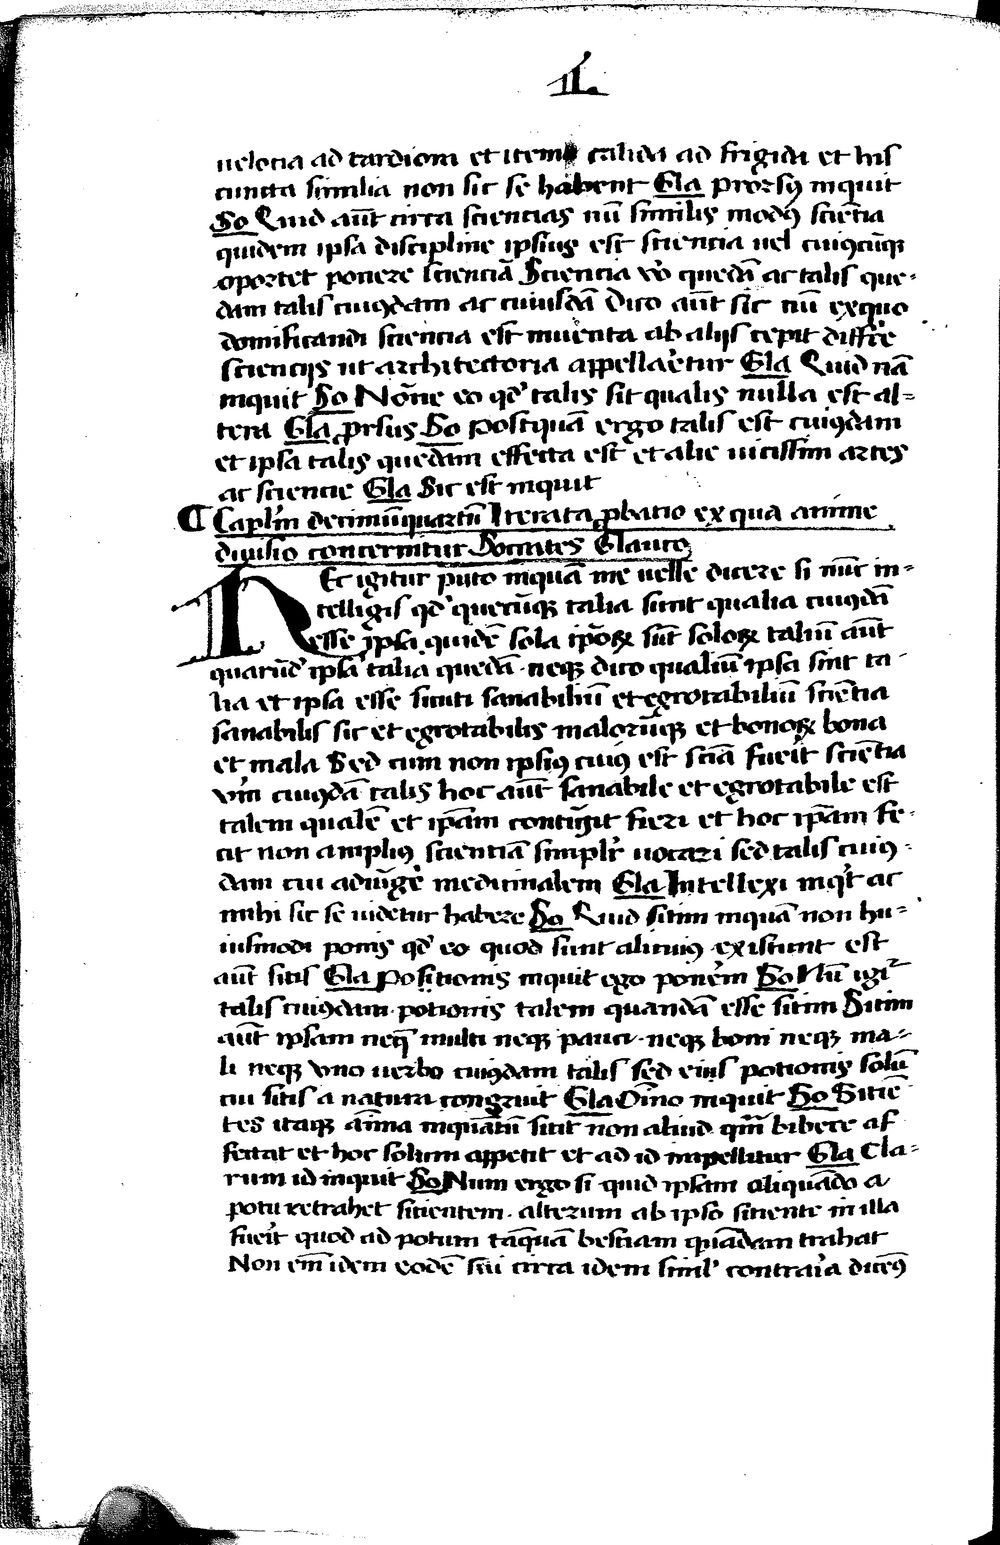 1L
uelocia ad tardiora et item calida ad frigida et his
cuncta similia non sic se habent Gla prorsꝯ inquit
So Quid aūt circa sciencias nū similis modꝯ sciētia
quidem ipsa discipline ipsius est sciencia uel cuiꝯcūqꝫ
oportet ponere scienciā Sciencia vo᷑ quedā ac talis que-
dam talis cuiꝯdam ac cuiusdā Dico aūt sic nū ex quo
domificandi sciencia est inuenta ab alijs cepit differe
sciencijs ut architectoria appellaretur Gla Quid nā
inquit So Nōne eo qd᷑ talis sit qualis nulla est al-
tera Gla ꝓrsus So postquā ergo talis est cuiꝯdam
et ipsa talis quedam effecta est et alie uicissim artes
ac sciencie Gla Sic est inquit
¶ Caplm decimūquartū Iterata ꝓbatio ex qua anime
diuisio concernitur Socrates Glauco
REc igitur puto inquā me uelle dicere si nūc in-
telligis qd᷑ quecūqꝫ talia sunt qualia cuiꝯdā
esse ipsa quidē sola ipōꝝ sūt soloꝝ taliū aūt
quarūd᷑ ipsa talia quedā neqꝫ dico qualiū ipsa sint ta-
lia et ipsa esse sicuti sanabiliū et egrotabiliū sciētia
sanabilis sic et egrotabilis malorūqꝫ et bonoꝝ bona
et mala Sed cum non ipsiꝯ cuiꝯ est sciā fuerit sciētia
vm cuiꝯdā talis hoc aūt sanabile et egrotabile est
talem qualē et ipām contigit fieri et hoc ipām fe-
cit non ampliꝯ scientiā simplr uocari sed talis cuiꝯ-
dam cui adiūge medicinalem Gla Intellexi inqt ac
mihi sic se uidetur habere So Quid sitim inquā non hu-
iusmodi ponis qd᷑ eo quod sunt alicuiꝯ existunt est
aūt sitis Gla Positionis inquit ego ponerem So Nū igr
talis cuiꝯdam potionis talem quandā esse sitim Sitim
aūt ipsam neqꝫ multi neqꝫ pauci neqꝫ boni neqꝫ ma-
li neqꝫ vno uerbo cuiꝯdam talis sed eius potionis solū
cui sitis a natura congruit Gla Oīno inquit So Sitiē
tes itaqꝫ aīma inquātū sitit non aliud qm̄ bibere af
fectat et hoc solum appetit et ad id impellitur Gla Cla-
rum id inquit So Num ergo si quid ipsam aliquādo a
potu retrahet sitientem alterum ab ipso sitiente in illa
fuerit quod ad potum tāquā bestiam quādam trahat
Non em̄ idem eodē sui circa idem simul contraria dicēꝯ